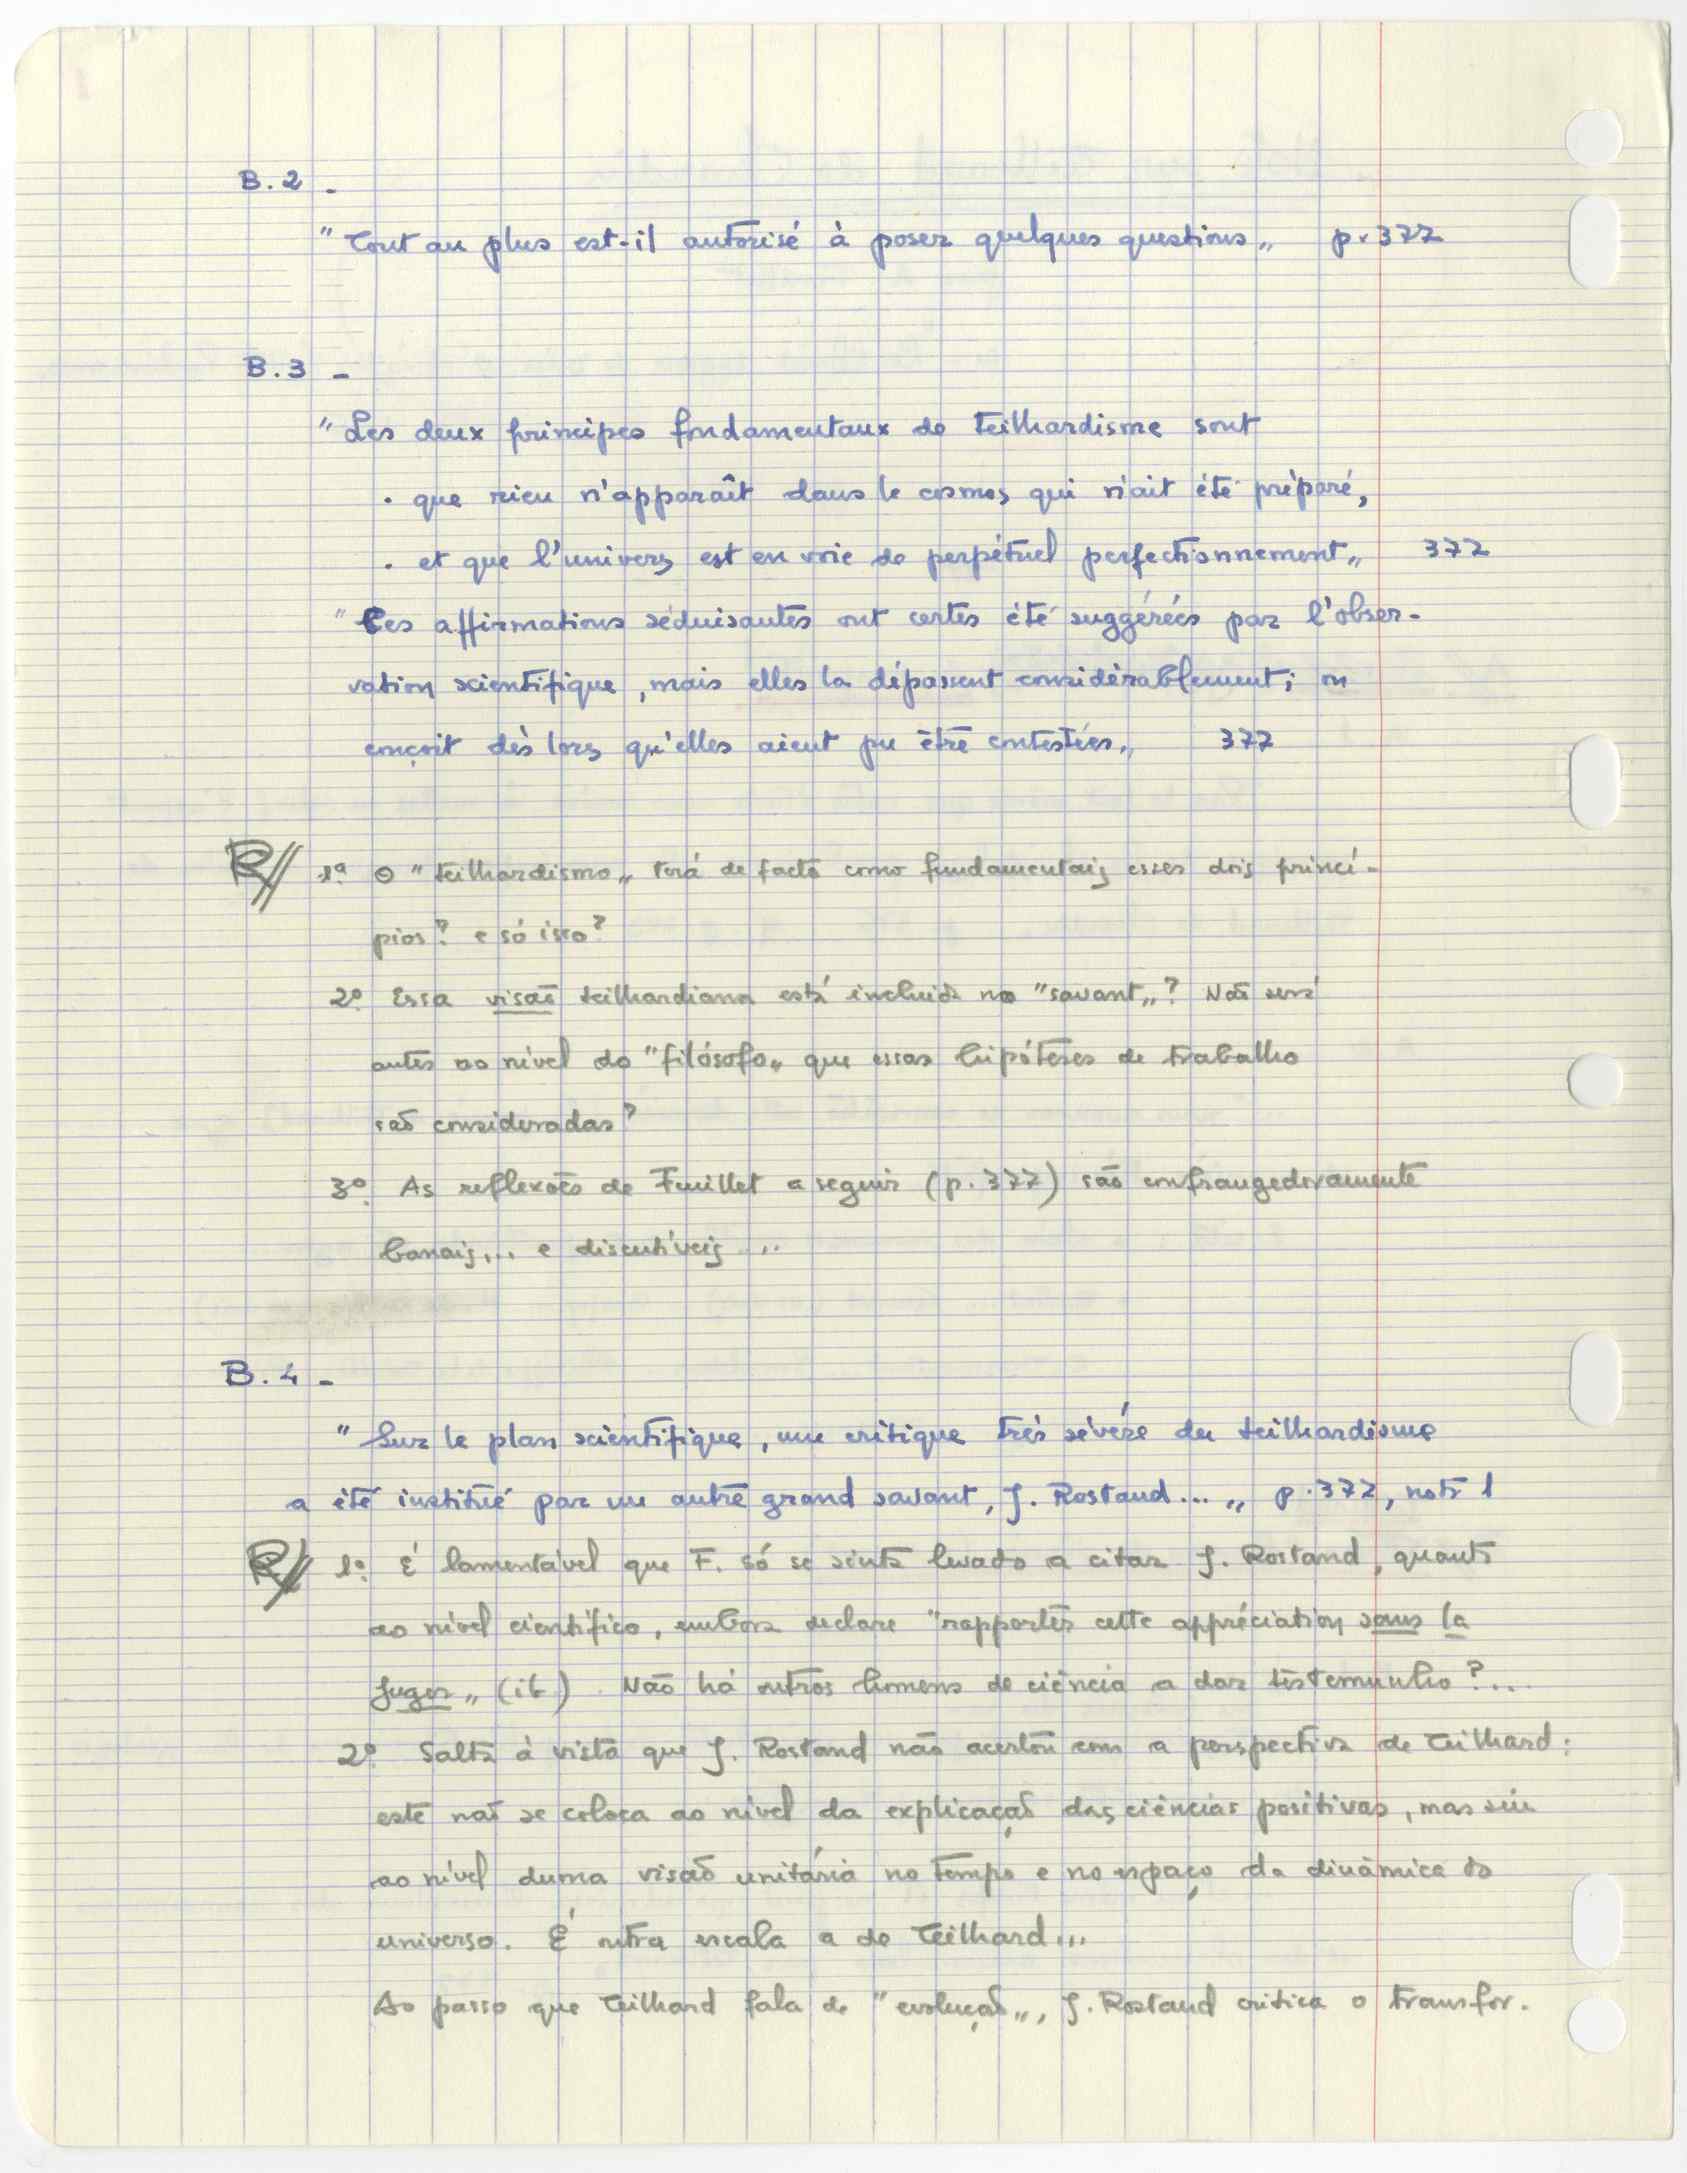 B.2 -
" Tout au plus est-il autorisé à poser quelques questions „ p. 377
B.3 -
" Les deux principes fondamentaux de Teilhardisme sont
. que rien n'apparaît dans le cosmos qui n'ait été préparé,
. et que l'univers est en voie de perpétuel perfectionnement „ 377
" Ces affirmations séduisantes ont certes été suggérées par l'obser-
vation scientifique, mais elles la dépassent considérablement; on
conçoit dès lors qu'elles aient pu être contestées „ 377
R// 1º. O " teilhardismo „ terá de facto como fundamentais esses dois princí-
pios? e só isso?
2º. Essa visão teilhardiana está incluida no "savant„? Não será
antes ao nível do "filósofo„ que essas hipóteses de trabalho
são consideradas?
3º. As reflexões de Feuillet a seguir (p. 377) são confrangedoramente
banais... e discutíveis ...
B.4 -
" Sur le plan scientifique, une critique très sévère du teilhardisme
a été instituée par un autre grand savant, J. Rostand... „ p. 377, note 1
R// 1º. É lamentável que F. só se sinta levado a citar J. Rostand, quanto
ao nível científico, embora declare "rapporter cette appréciation sans la
juger „ (ib). Não há outros homens de ciência a dar testemunho?...
2º. Salta à vista que J. Rostand não acertou com a perspectiva de Teilhard:
este não se coloca ao nível da explicação das ciências positivas, mas sim
ao nível duma visão unitária no tempo e no espaço da dinâmica do
universo. É outra escala a de Teilhard...
Ao passo que Teilhard fala de " evolução „, J. Rostand critica o transfor-